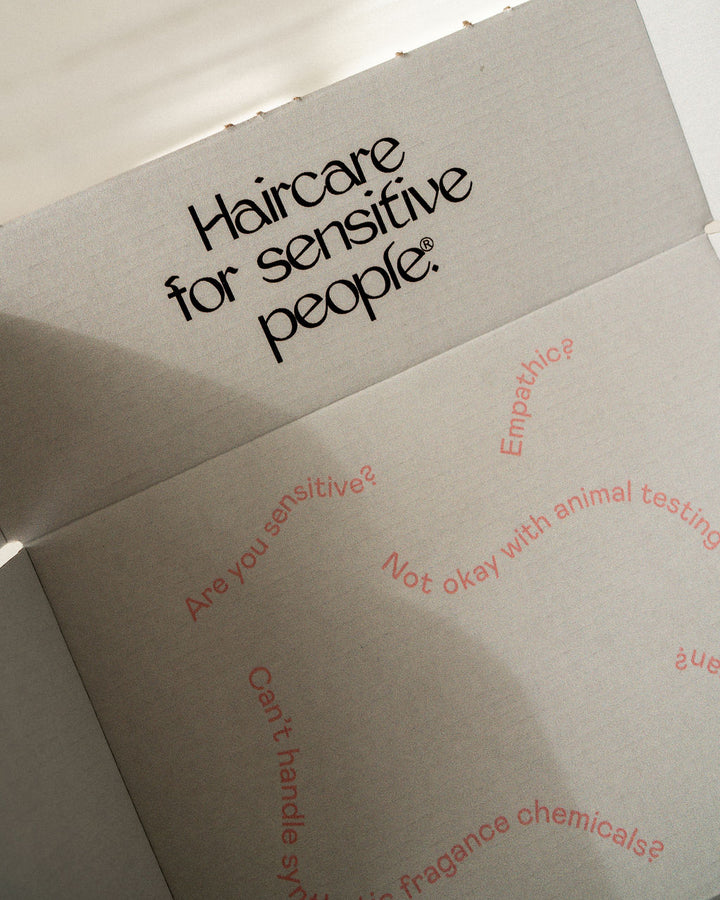 Haircare
for sensitive
people.®
Empathic?
Are you sensitive?
Not okay with animal testing
Can't handle fragance chemicals?